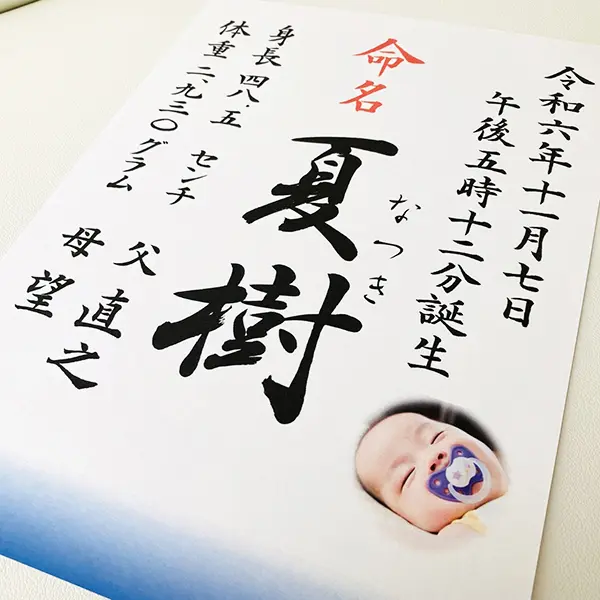 令和六年十一月七日
午後五時十二分誕生
命名
夏樹
なつき
身長 四八.五 センチ
体重 二、九三〇グラム
父 直之
母 望